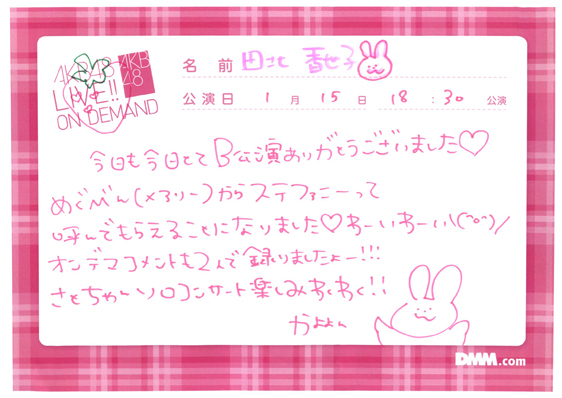 AKB48
LIVE!!
ON DEMAND
AKB
48
名前 田北 香世子
公演日 1月15日 18:30 公演
今日も今日とてB公演ありがとうございました♡
めぐぺん(メアリー)からステファニーって
呼んでもらえることになりました♡わーいわーい\(^o^)/
オンデマコメントも2人で録りましたよー!!!
さとちゃんソロコンサート楽しみわくわく!!
かよよん
DMM.com